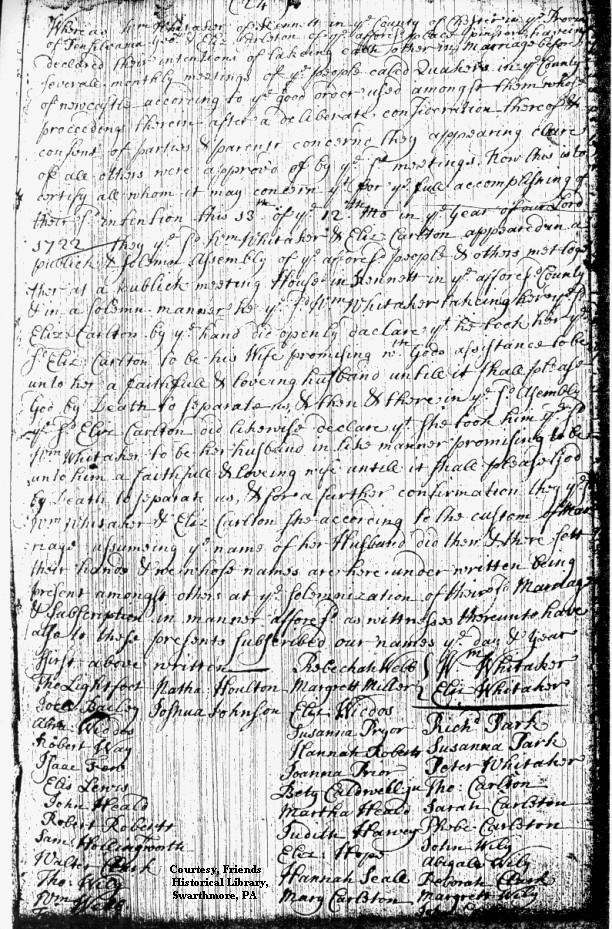 (24)
Whereas Wm Whitaker of Kennett in ye County of Chester in ye Province
of Pensilvania & Eliz: Carleton of ye affores: place Spinster having
declared their intentions of takeing each other in Marriage before
severall monthly meetings of ye people caled Quakers in ye County
of newcastle according to ye good order used amongst them whose
proceedings therein after a deliberate consideration thereof &
consent of parties & parents concernd they appearing cleare
of all others were approv'd of by ye sd meetings. Now this is to
certify all whom it may concern yt for ye full accomplishing of
their sd intention this 13th of ye 12th mo in ye year of our Lord
1722 they ye sd Wm Whitaker & Eliz: Carlton appeared in a
publick & solemn Assembly of ye affores: people & others met toge
ther at a publick meeting House in Kennett in ye afforesd County
& in a solemn manner he ye sd Wm Whitaker takeing her ye sd
Eliz: Carlton by ye hand did openly declare yt he took her ye
sd Eliz: Carlton to be his Wife promising wth Gods assistance to be
unto her a faithfull & loveing husband untill it shall please
God by Death to separate us, & then & there in ye sd Assembly
ye sd Eliz: Carlton did likewise declare yt she took him ye sd
Wm Whitaker to be her husband in like manner promising to be
unto him a faithfull & loveing wife untill it shall please God
by Death to separate us, & for a further confirmation they ye sd
Wm Whitaker & Eliz Carlton she according to the custom of Mar
riage assumeing ye name of her Husband did then & there sett
their hands & we whose names are here under written being
present amongst others at ye solemnization of their sd Marriage
& Subscription in manner afforesd as wittnesses thereunto have
also to these presents subscribed our names ye day & year
first above written
Rebeckah Webb
Wm Whitaker
Tho: Lightfoot Natha: Houlton Margrett Miller
Eliz Whitaker
Joel Bailey Joshua Johnson Eliz Wicdos
Abm Wicdos Susanna Pryor Richd Park
Robert Way Hannah Roberts Susanna Park
Isaac Joanna Prior Peter Whitaker
Elis Lewis Betty Caldwell ju Tho: Carlton
John Heald Martha Heald Sarah Carlston
Robert Roberts Judith Harvey Phebe Carlston
Sam Hollingworth Eliz: Hope John Wily
Walter Hannah Seale Abigale Wily
Tho: Wily Mary Carlton Deborah
Wm Webb Margrett Wily
Courtesy, Friends
Historical Library,
Swarthmore, PA